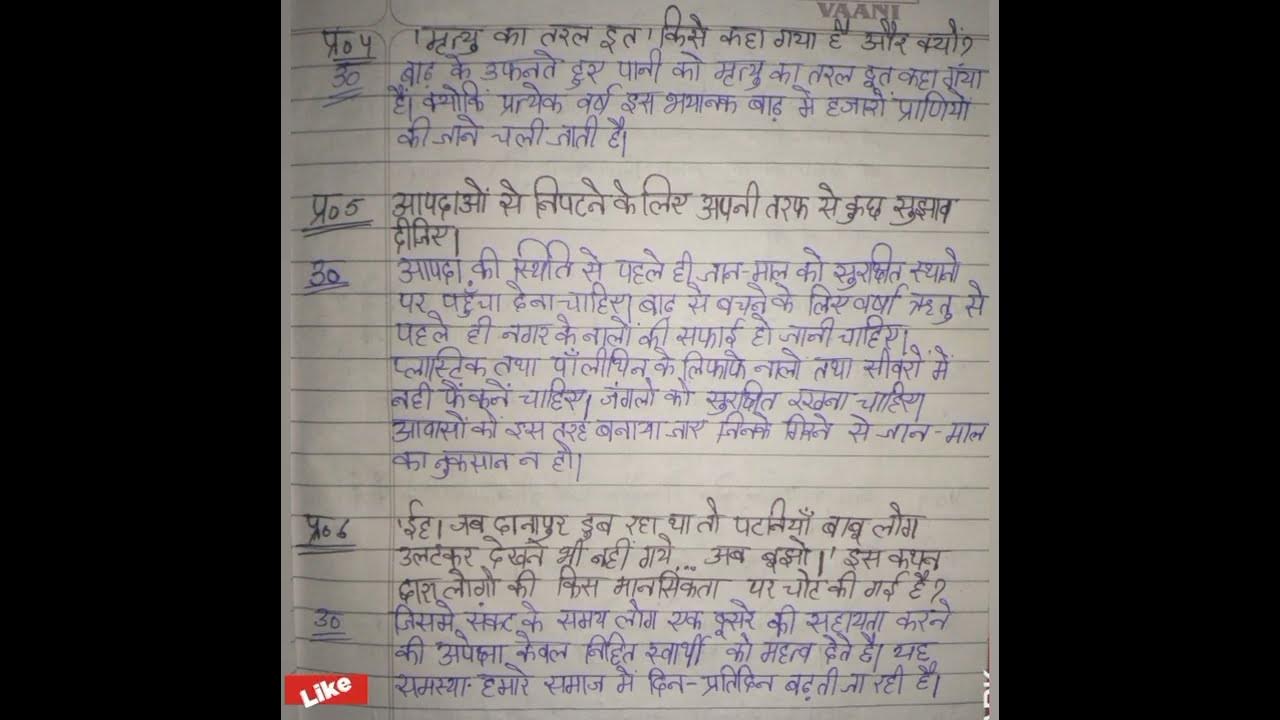 VAANI
प्र०4 'मृत्यु का तरल दूत' किसे कहा गया है और क्यों?
उ० बाढ़ के उफनते हुए पानी को मृत्यु का तरल दूत कहा गया
है। क्योकि प्रत्येक वर्ष इस भयानक बाढ़ में हजारों प्राणियो
की जाने चली जाती है।
प्र०5 आपदाओं से निपटने के लिए अपनी तरफ से कुछ सुझाव
दीजिए।
उ० आपदा की स्थिति से पहले ही जान-माल को सुरक्षित स्थानो
पर पहुँचा देना चाहिए। बाढ़ से बचने के लिए वर्षा ऋतु से
पहले ही नगर के नालों की सफाई हो जानी चाहिए।
प्लास्टिक तथा पॉलीथिन के लिफाफे नालो तथा सीवरों में
नही फैंकनें चाहिए। जंगलो को सुरक्षित रखना चाहिए।
आवासों को इस तरह बनाया जाए जिनके गिरने से जान-माल
का नुकसान न हो।
प्र०6 'ईह। जब दानापुर डुब रहा था तो पटनियाँ बाबू लोग
उलटकर देखने भी नहीं गये... अब बूझो।' इस कथन
द्वारा लोगो की किस मानसिकता पर चोट की गई है?
उ० जिसमे संकट के समय लोग एक दूसरे की सहायता करने
की अपेक्षा केवल निहित स्वार्थो को महत्व देते है। यह
समस्या हमारे समाज में दिन-प्रतिदिन बढ़ती जा रही है।
Like